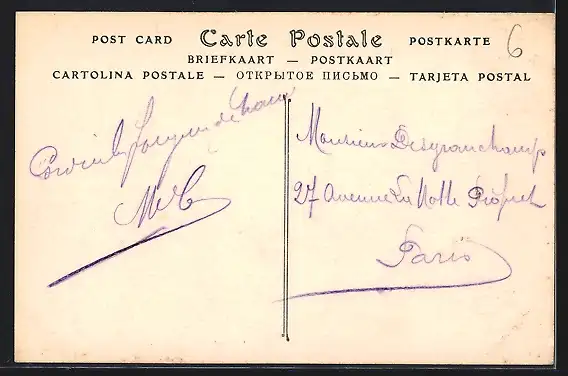 POST CARD Carte Postale POSTKARTE
6
BRIEFKAART — POSTKAART
CARTOLINA POSTALE — ОТКРЫТОЕ ПИСЬМО — TARJETA POSTAL
Monsieur Desgranchamp
27 Avenue La Motte Picquet
Paris